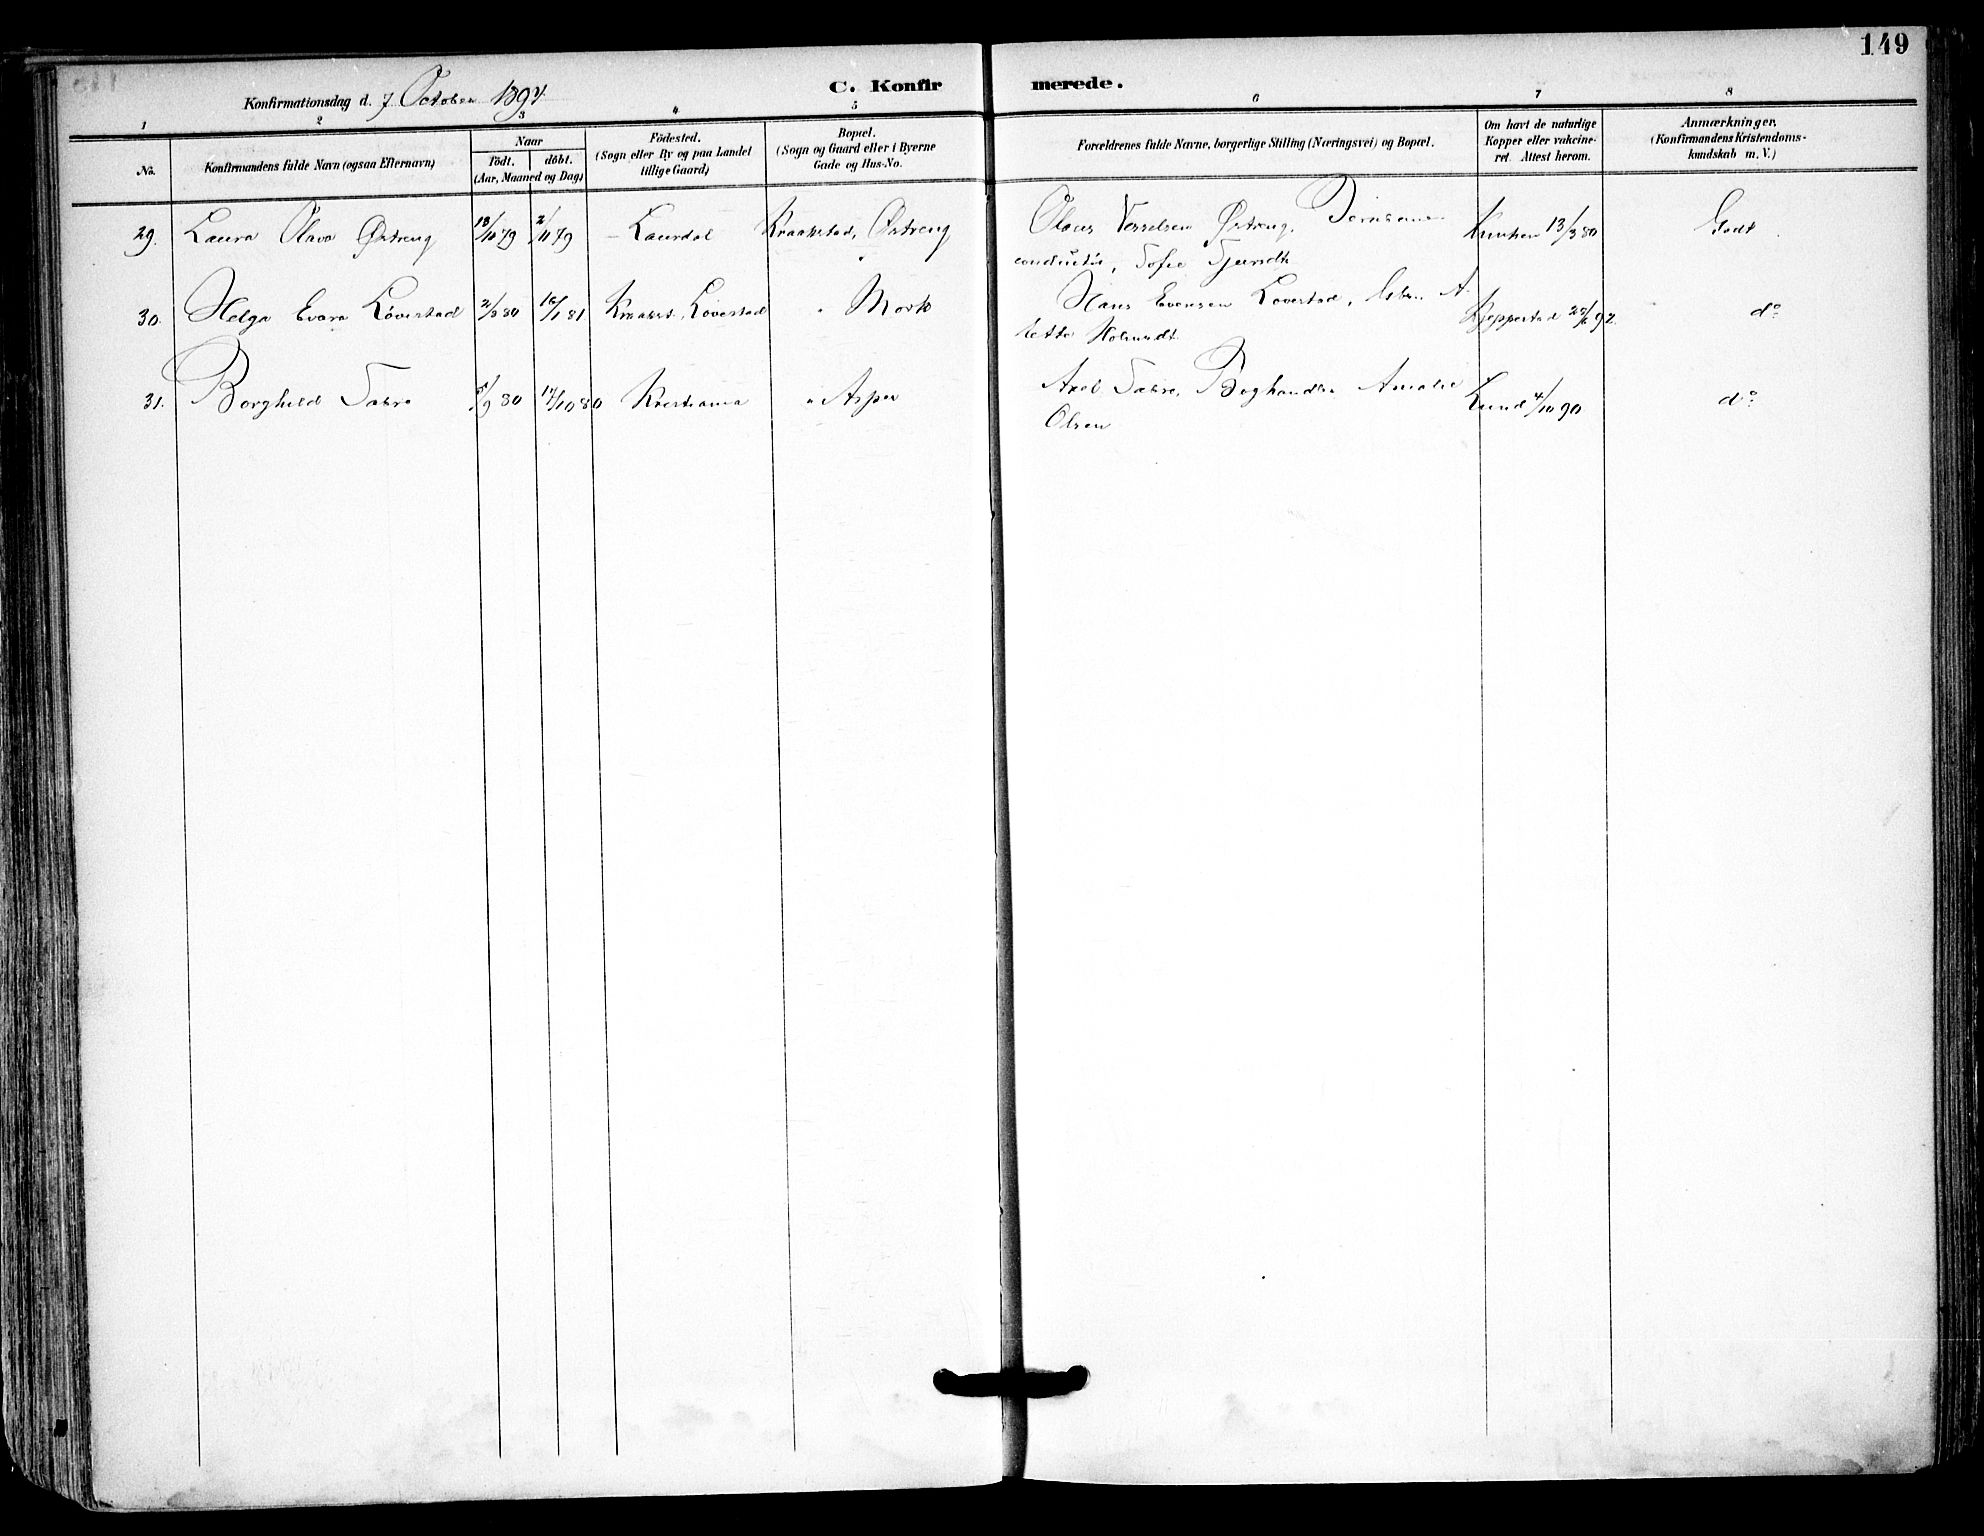 149
Konfirmationsdag d. 7 October 1894.
C. Konfirmerede.
1 2 3 4 5 6 7 8
No.
Konfirmandens fulde Navn (ogsaa Efternavn)
Naar
Födt. döbt.
(Aar, Maaned og Dag)
Födested.
(Sogn eller By og paa Landet
tillige Gaard)
Bopæl.
(Sogn og Gaard eller i Byerne
Gade og Hus-No.
Forældrenes fulde Navne, borgerlige Stilling (Næringsvei) og Bopæl.
Om havt de naturlige
Kopper eller vakcine-
ret. Attest herom.
Anmærkninger.
(Konfirmandens Kristendoms-
kundskab m. V.)
29. Laura Olava Østreng 18/10 79 2/11 79 Laurdal Kraakstad, Østreng Olaus Østreng, 13/3 80 Godt
conductør, Sofie
30. Helga Løvestad 2/3 80 16/1 81 Kraakst. Løvestad " Mork Hans Evensen Løvestad, A Kjeppestad 92. do
lette
31. Borghild 5/9 80 17/10 80 Kristiania " Asper Axel Boghandler Amalie Lund 4/10 90 do
Olsen